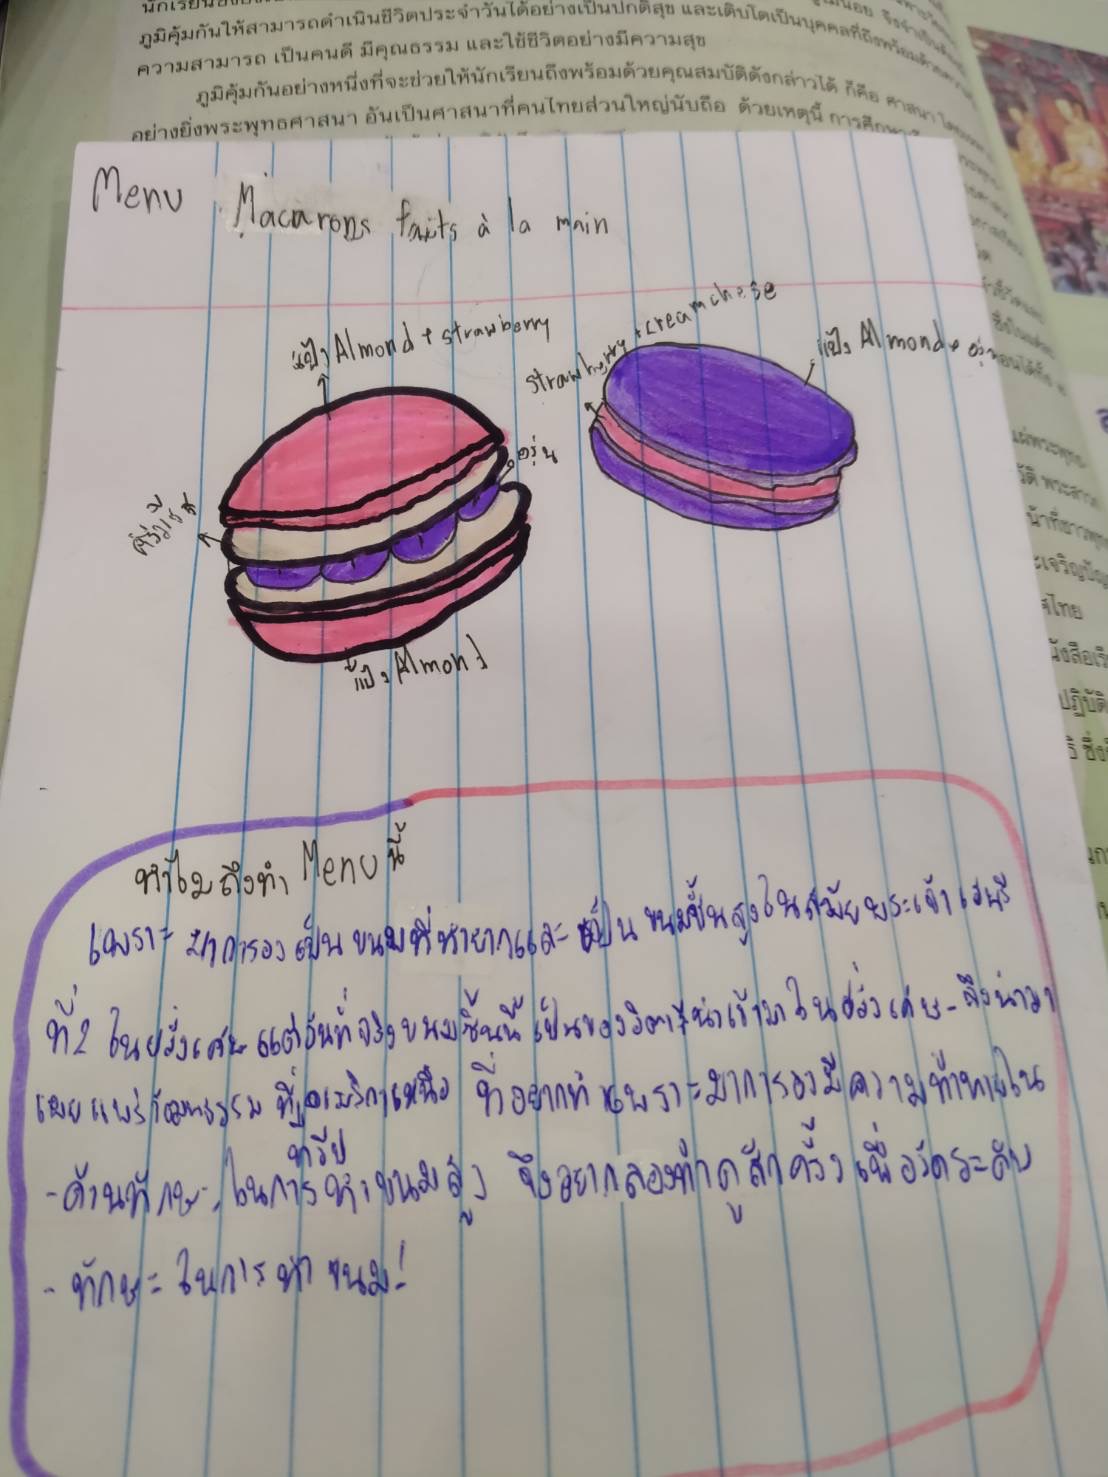 ภูมิคุ้มกันให้สามารถดำเนินชีวิตประจำวันได้อย่างเป็นปกติสุข และเติบโตเป็นบุคคลที่ถึงพร้อมด้วยความ
ความสามารถ เป็นคนดี มีคุณธรรม และใช้ชีวิตอย่างมีความสุข
ภูมิคุ้มกันอย่างหนึ่งที่จะช่วยให้นักเรียนถึงพร้อมด้วยคุณสมบัติดังกล่าวได้ ก็คือ ศาสนา
อย่างยิ่งพระพุทธศาสนา อันเป็นศาสนาที่คนไทยส่วนใหญ่นับถือ ด้วยเหตุนี้ การศึกษา
Menu Macarons faits à la main
แป้ง Almond + strawberry
strawberry + creamcheese
แป้ง Almond + องุ่น
องุ่น
ครีมชีส
แป้ง Almond
ทำไมถึงทำ Menu นี้
เพราะ มาการองเป็นขนมที่ทำยากและเป็นขนมชั้นสูงในสมัยพระเจ้าเฮนรี
ที่2 ในฝรั่งเศษ แต่อันที่จริงขนมชิ้นนี้เป็นของอิตาลีนำเข้ามาในฝรั่งเศษ จึงนำมา
เผยแพร่วัฒนธรรม ที่อเมริกาเหนือ ที่อยากทำเพราะมาการองมีความท้าทายใน
ทวีป
-ด้านทักษะในการทำขนมสูง จึงอยากลองทำดูสักครั้งเพื่อวัดระดับ
-ทักษะในการทำขนม!